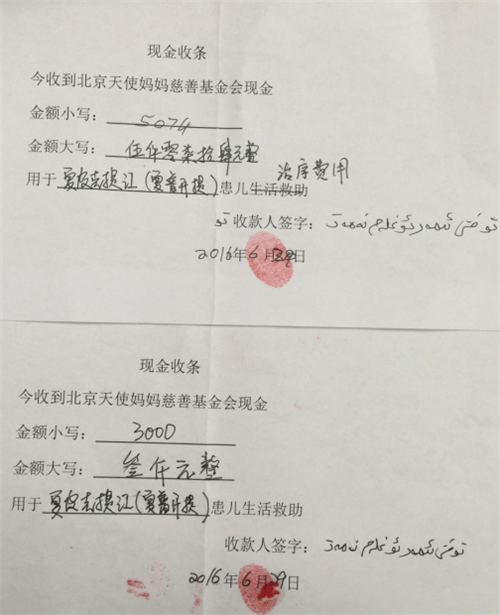 现金收条
今收到北京天使妈妈慈善基金会现金
金额小写：5074
金额大写：伍仟零柒拾肆元整
治疗费用
用于 患儿生活救助
收款人签字：
2016年6月29日
现金收条
今收到北京天使妈妈慈善基金会现金
金额小写：3000
金额大写：叁仟元整
用于 患儿生活救助
收款人签字：
2016年6月29日